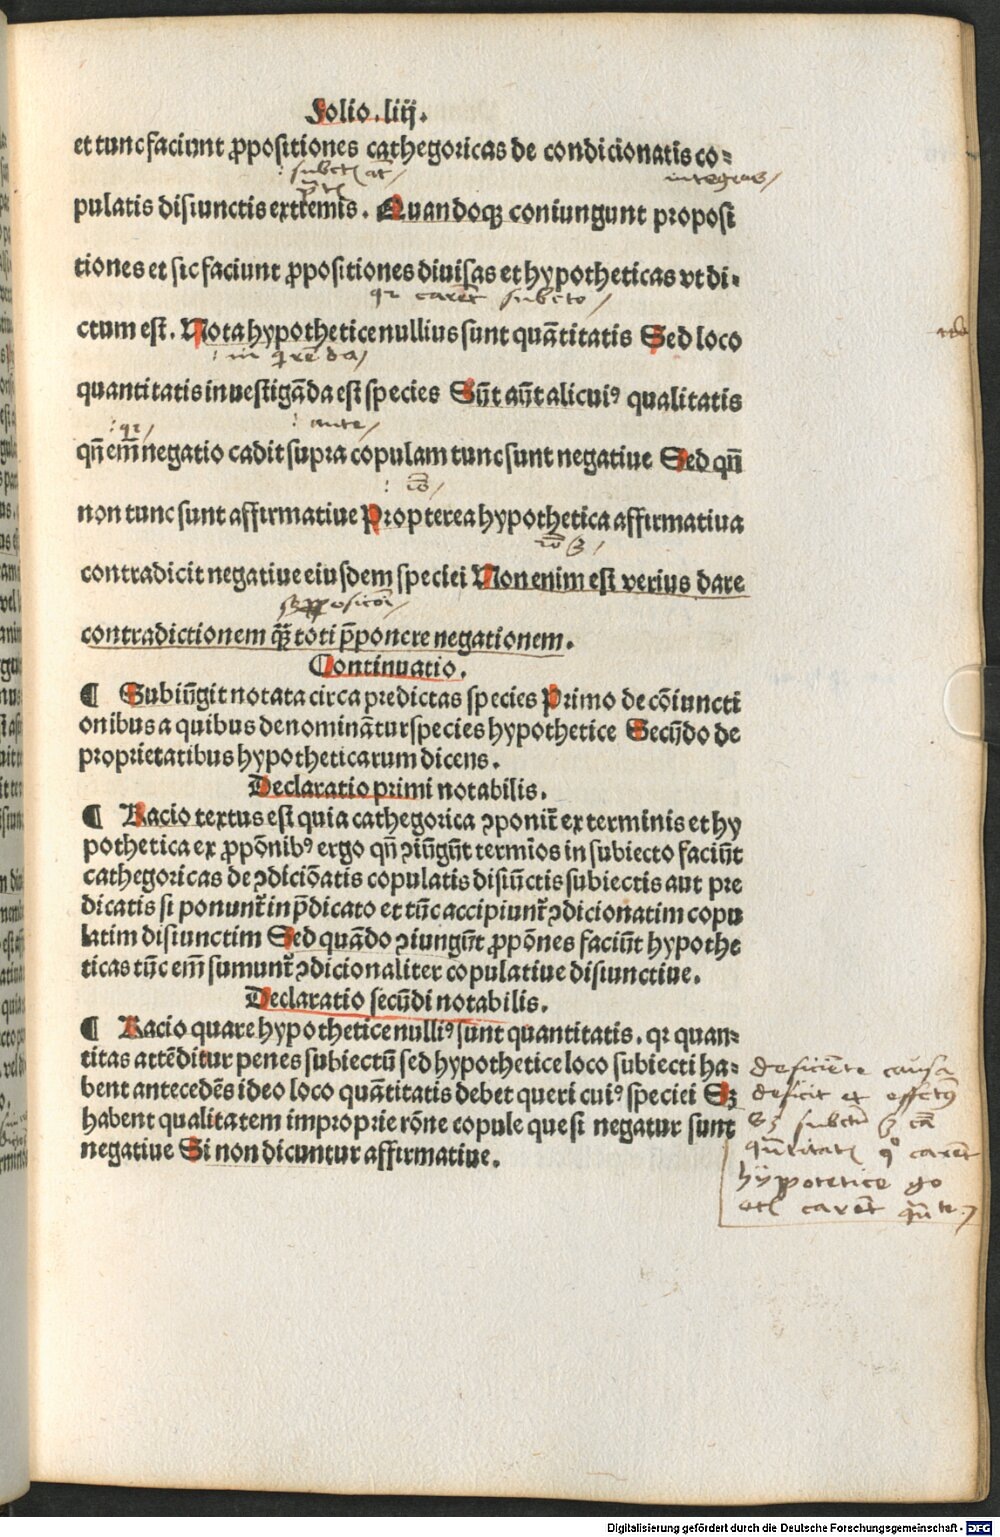 Folio.liij.
et tunc faciunt ꝓpositiones cathegoricas de condicionatis co⸗
integras
pulatis disiunctis extremis. Quandoqꝫ coniungunt proposi
tiones et sic faciunt ꝓpositiones diuisas et hypotheticas vt di⸗
qr carēt subcto
ctum est. Nota hypothetice nullius sunt quātitatis Sed loco
quantitatis inuestigāda est species Sūt aūt alicuiꝰ qualitatis
: qr : ante
qn̄ em̄ negatio cadit supra copulam tunc sunt negatiue Sed qn̄
non tunc sunt affirmatiue Propterea hypothetica affirmatiua
contradicit negatiue eiusdem speciei Non enim est verius dare
contradictionem qꝫ toti p̄ponere negationem.
Continuatio.
¶ Subiūgit notata circa predictas species Primo de cōiuncti
onibus a quibus denominātur species hypothetice Secūdo de
proprietatibus hypotheticarum dicens.
Declaratio primi notabilis.
¶ Racio textus est quia cathegorica ꝯponit̄ ex terminis et hy
pothetica ex ꝓpōnibꝰ ergo qn̄ ꝯiūgūt termīos in subiecto faciūt
cathegoricas de ꝯdiciōatis copulatis disiūctis subiectis aut pre
dicatis si ponunt̄ in p̄dicato et tūc accipiunt̄ ꝯdicionatim copu
latim disiunctim Sed quādo ꝯiungūt ꝓpōnes faciūt hypothe
ticas tūc em̄ sumunt̄ ꝯdicionaliter copulatiue disiunctiue.
Declaratio secūdi notabilis.
¶ Racio quare hypothetice nulliꝰ sunt quantitatis. qr quan⸗
titas attēditur penes subiectū sed hypothetice loco subiecti ha⸗
bent antecedēs ideo loco quātitatis debet queri cuiꝰ speciei Sꝫ
habent qualitatem improprie rōne copule que si negatur sunt
negatiue Si non dicuntur affirmatiue.
deficiēte causa
deficit et effectꝰ
Sꝫ subctū ē cā
qūtitatis qꝰ carēt
hÿppotetice go
carēt qūte
Digitalisierung gefördert durch die Deutsche Forschungsgemeinschaft - DFG